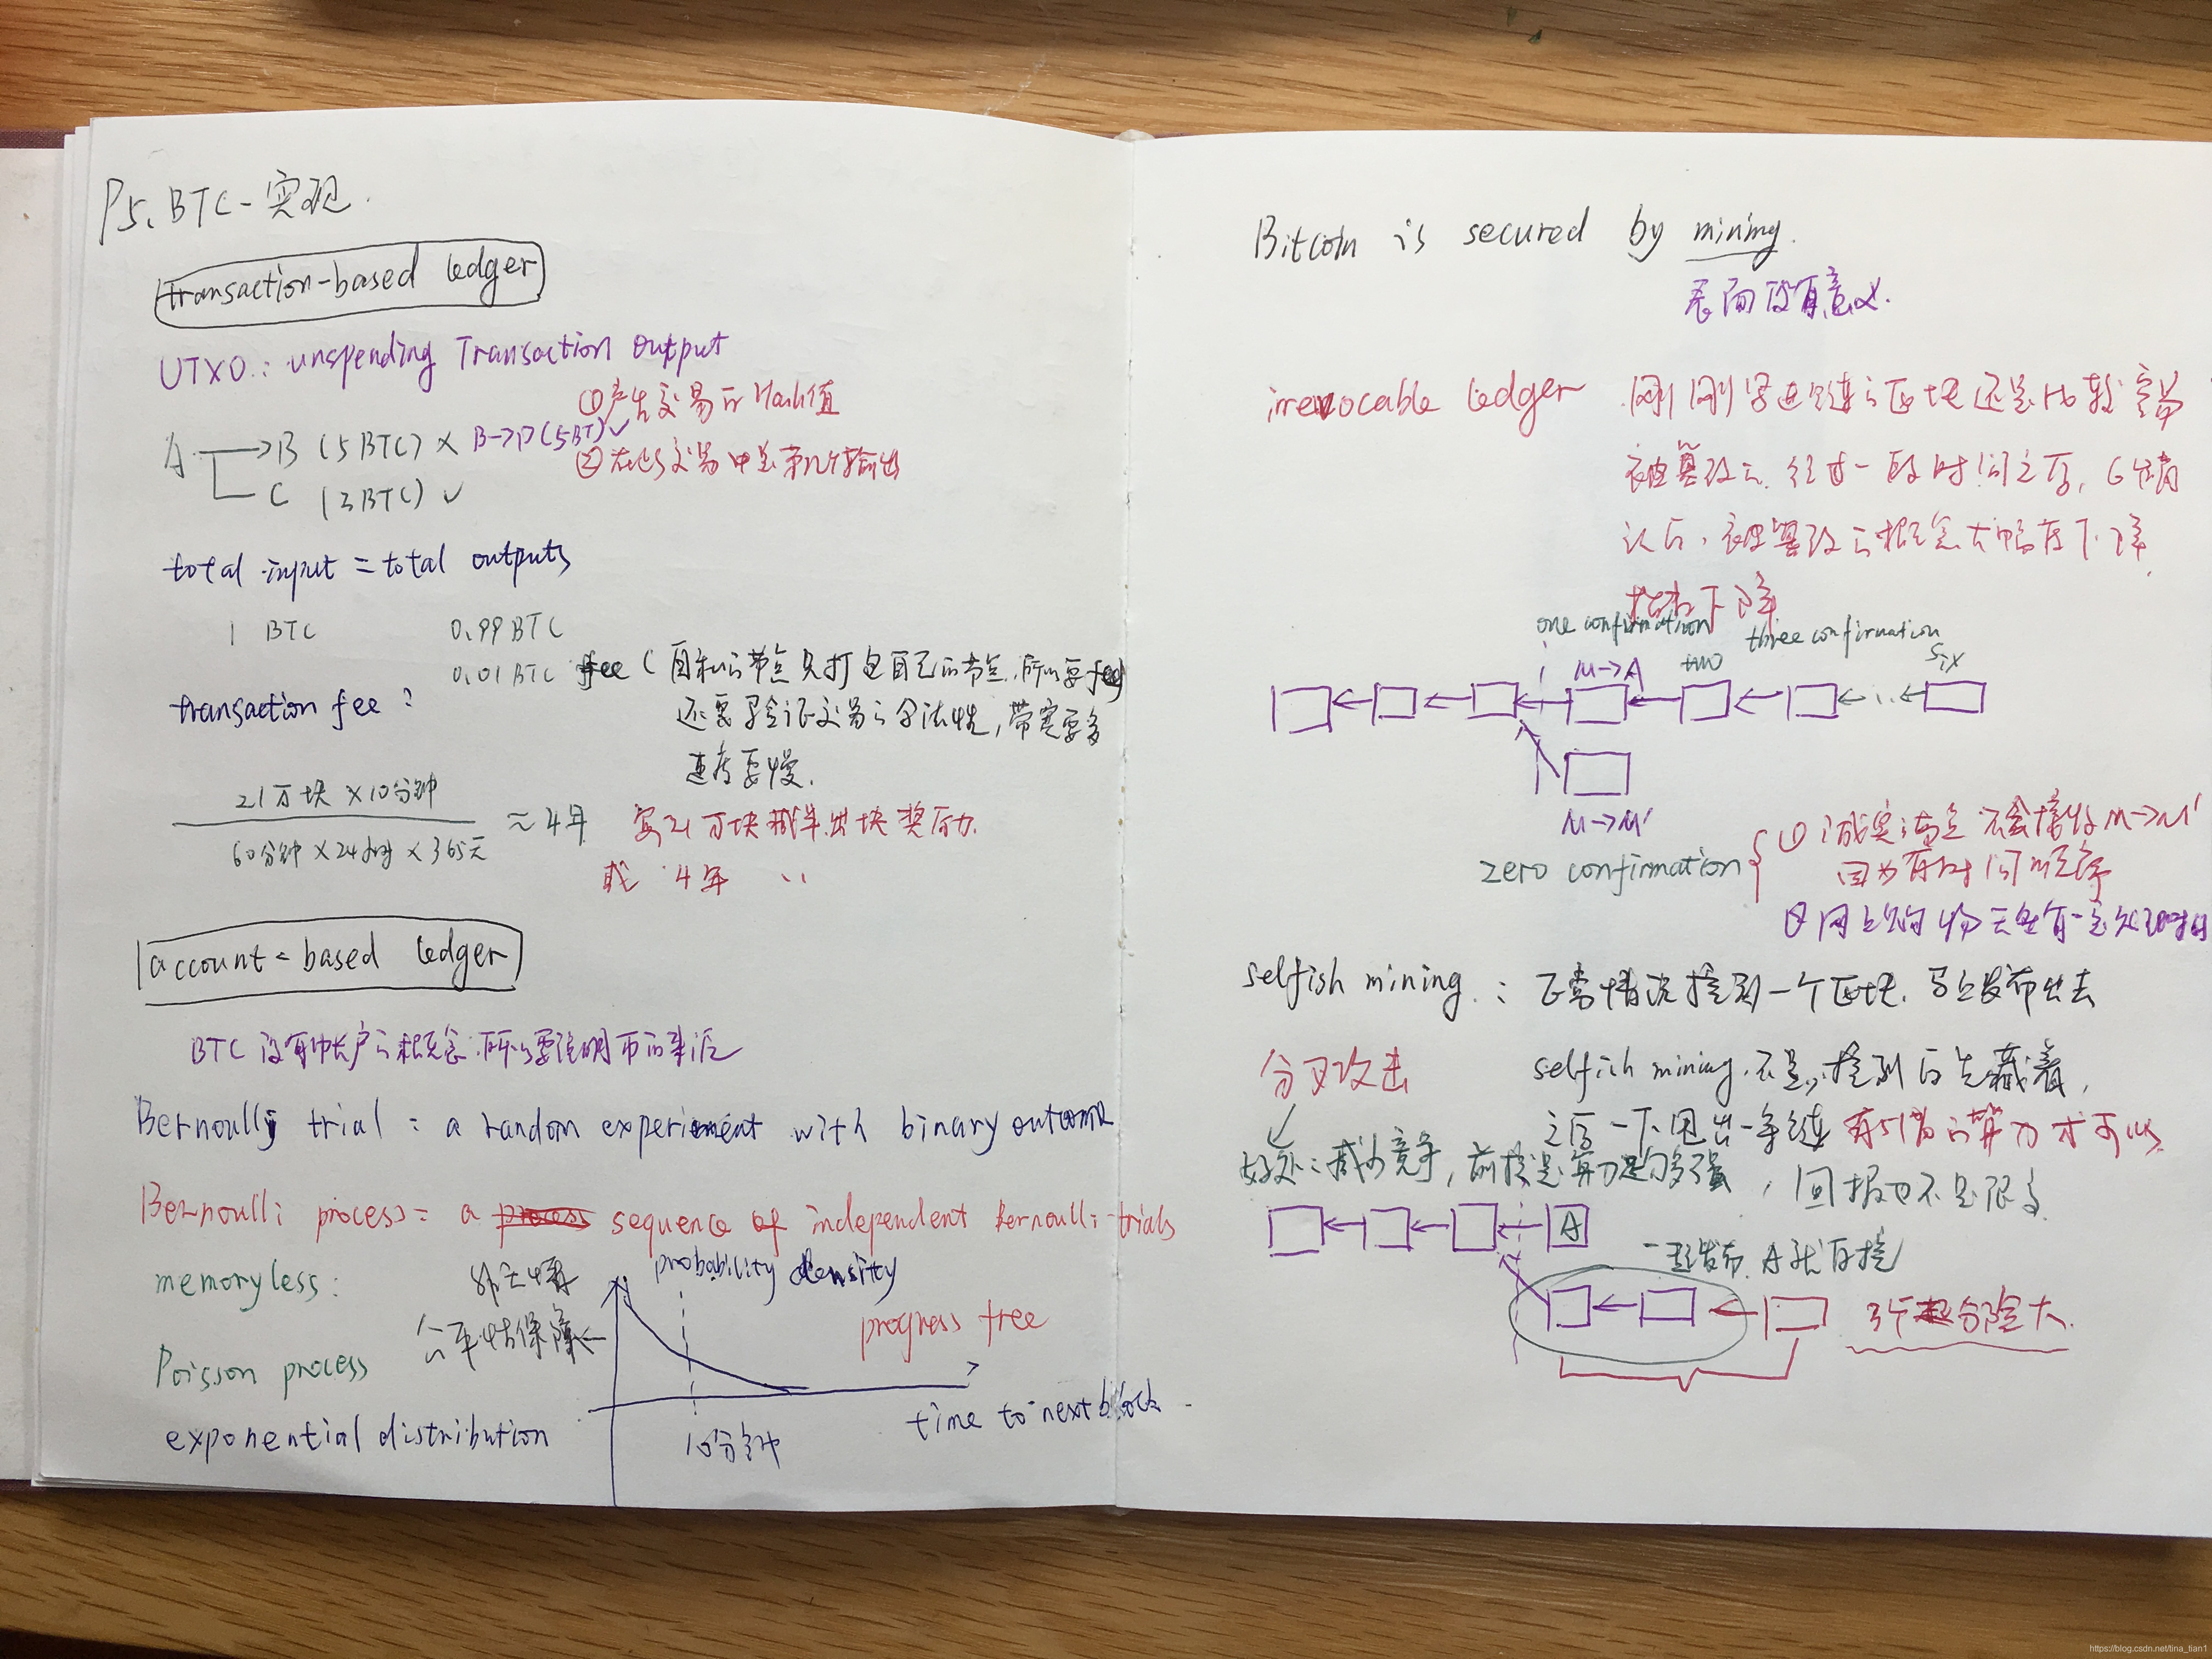 P5、BTC-实现.
transaction-based ledger
UTXO: unspending Transaction output
①产生交易的Hash值
A → B (5BTC) × B→D(5BT)✓
②在此交易中是第几个输出
C (3BTC) ✓
total input = total outputs
1 BTC 0.99BTC
0.01BTC fee (自私的节点只打包自己的节点,所以要fee)
transaction fee:
还要验证交易的合法性,带宽要多
速度要慢.
21万块×10分钟
60分钟×24小时×365天
≈4年 每21万块减半出块奖励.
或 4年 〃
account-based ledger
BTC没有帐户的概念.所以要说明币的来源
Bernoulli trial: a random experiment with binary outcome
Bernoulli process: a process sequence of independent Bernoulli trials
memoryless:
probability density
公平性保障←
progress free
Poisson process
time to next block.
exponential distribution
10分钟
Bitcoin is secured by mining.
表面没有意义.
irrevocable ledger 刚刚写进链的区块还是比较容易
被篡改的.经过一段时间之后,6个确
认后,被篡改的概率大幅度下降
指数下降
one confirmation three confirmation
M→A two six
M→M'
zero confirmation ①诚实节点不会接收M→M'
因为有时间顺序
②网上购物天生有一定处理时间
selfish mining: 正常情况挖到一个区块.马上发布出去
分叉攻击 selfish mining.不是,挖到后先藏着,
之后一下甩出一条链 有51%的算力才可以
好处:减少竞争,前提是算力足够强,回报也不是很多
A
一起发布.A就白挖
3个 分险大.
https://blog.csdn.net/tina_tian1